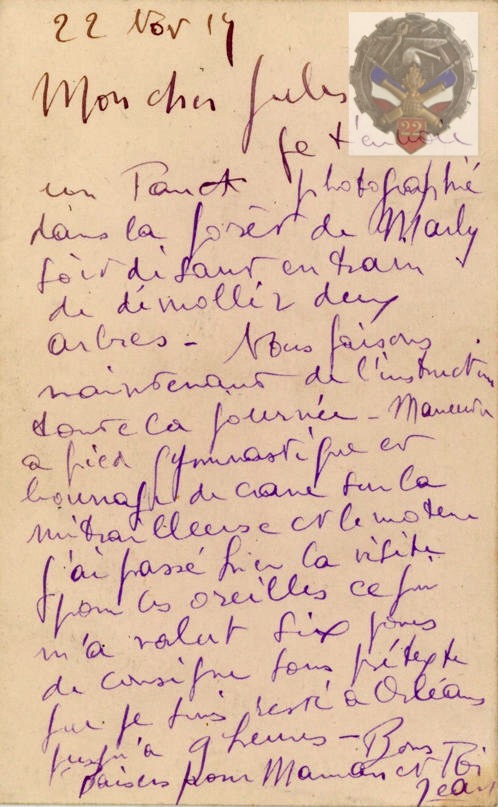 22 Nov 19
Mon cher Jules
22
je t'envoie
un Tanct photographié
dans la forêt de Marly
soit disant en train
de démollir deux
arbres - Nous faisons
maintenant de l'instruction
toute la journée - Maneuvre
a pied gymnastique et
bourrage de crane sur la
mitrailleuse et le moteur
j'ai passé hier la visite
pour les oreilles ce qui
m'a valut six jours
de consigne sous prétexte
que je suis resté à Orléans
jusqu'à 9 heures - Bons
Baisers pour Maman et Toi
Jean